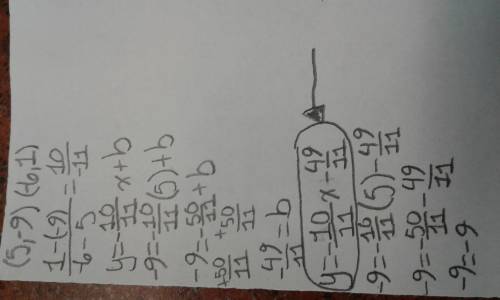 (5,-9) (-6,1)
1-(-9)/-6-5 = 10/-11
y=-10/11x+b
-9=-10/11(5)+b
-9=-50/11+b
+50/11 +50/11
-49/11=b
y=-10/11x+49/11
-9=-10/11(5)-49/11
-9=-50/11-49/11
-9=-9